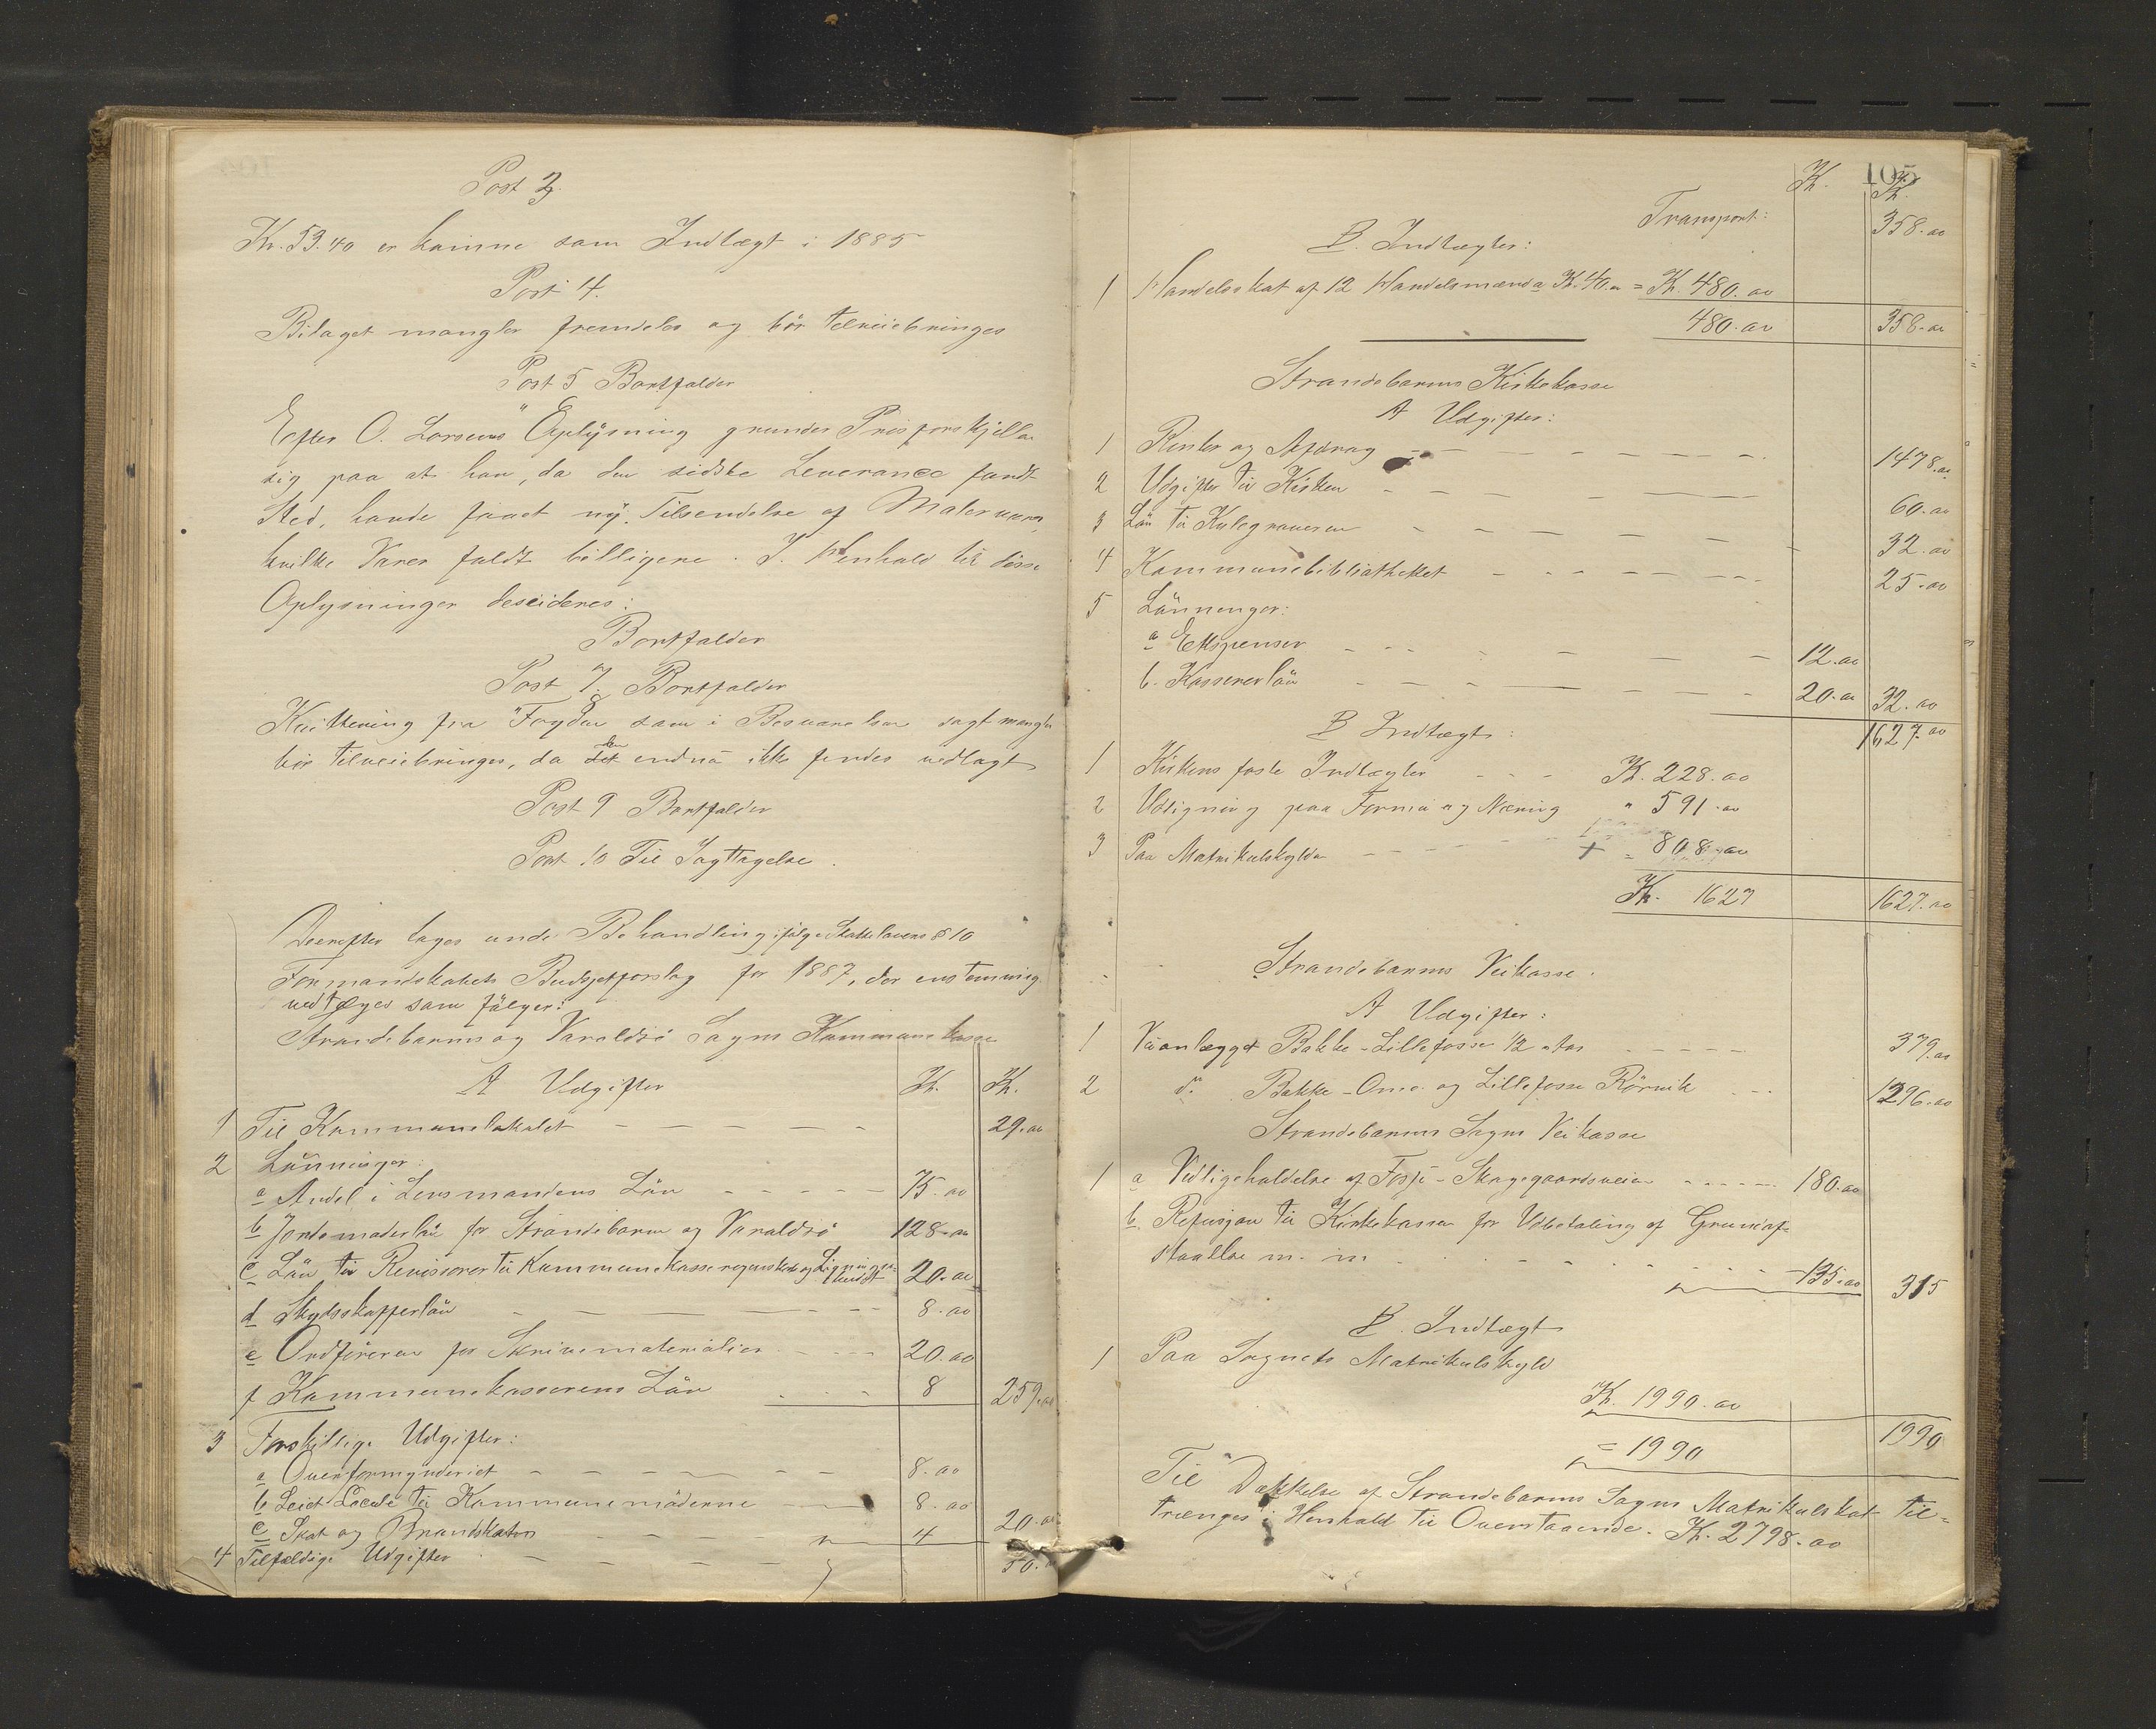 Post 3
Kr. 53.40 er komne som Indtægt i 1885
Post 4.
Bilaget mangler fremdeles og bör tilveiebringes
Post 5 Bortfalder
Efter O. Larsens Oplysning grunder Prisforskjellen
sig paa at han, da den sidste Leverance fandt
Sted, havde faaet ny Tilsendelse af Malervarer,
hvilke Varer faldt billigere. I Henhold til disse
Oplysninger desideres:
Bortfalder
Post 7. Bortfalder
Kvittering fra Fogden som i Besvarelsen sagt mangler
bör tilveiebringes, da den endnu ikke findes vedlagt
Post 9 Bortfalder
Post 10 Til Iagttagelse.
Derefter toges under Behandling ifölge Skattelovens § 10
Formandskabets Budgetforslag for 1887, der enstemmig
vedtoges som fölger:
Strandebarms og Varaldsö Sogns Kommunekasse
A Udgifter Kr. Kr.
1 Til Kommunelokalet 29.00
2 Lönninger:
a Andel i Lensmandens Lön 75.00
b Jordemoderlön for Strandebarm og Varaldsö 128.00
c Lön til Revisorer til Kommunekasseregnskab og Ligningen 20.00
d Skydsskafferlön 8.00
e Ordföreren for Skrivematerialier 20.00
f Kommunekassererens Lön 8 259.00
3 Forskillige Udgifter:
a Overformynderiet 8.00
b Leiet Locale til Kommunemöderne 8.00
c Skat og Brandskat 4 20.00
4 Tilfældige Udgifter 50.00
105
Kr. Kr.
Transport: 358.00
B. Indtægter:
1 Handelsskat af 12 Handelsmænd a Kr. 40.00 = Kr. 480.00
480.00 358.00
Strandebarms Kirkekasse
A Udgifter:
1 Renter og Afdrag 1478.00
2 Udgifter til Kirken 60.00
3 Lön til Kulegraveren 32.00
4 Kommunebibliotheket 25.00
5 Lönninger:
a Ekspenser 12.00
b. Kassererlön 20.00 32.00
1627.00
B Indtægt:
1 Kirkens faste Indtægter Kr. 228.00
2 Udligning paa Formue og Næring " 591.00
3 Paa Matrikulskylden + = 808.00
Kr. 1627 1627.00
Strandebarms Veikasse.
A Udgifter:
1 Veianlægget Bakke-Lillefosse 12 379.00
2 do Bakke-Omo og Lillefosse Rörvik 1296.00
Strandebarms Sogns Veikasse
1 a Vedligeholdelse af Fosse-Skogegaardsveien 180.00
b. Refusjon til Kirkekassen for Udbetaling af Grundaf-
staaelse m. m. 135.00 315
B. Indtægt
1 Paa Sognets Matrikulskyld
Kr. 1990.00
= 1990 1990
Til Dækkelse af Strandebarms Sogns Matrikulskat til-
trænges i Henhold til Ovenstaaende. Kr. 2798.00